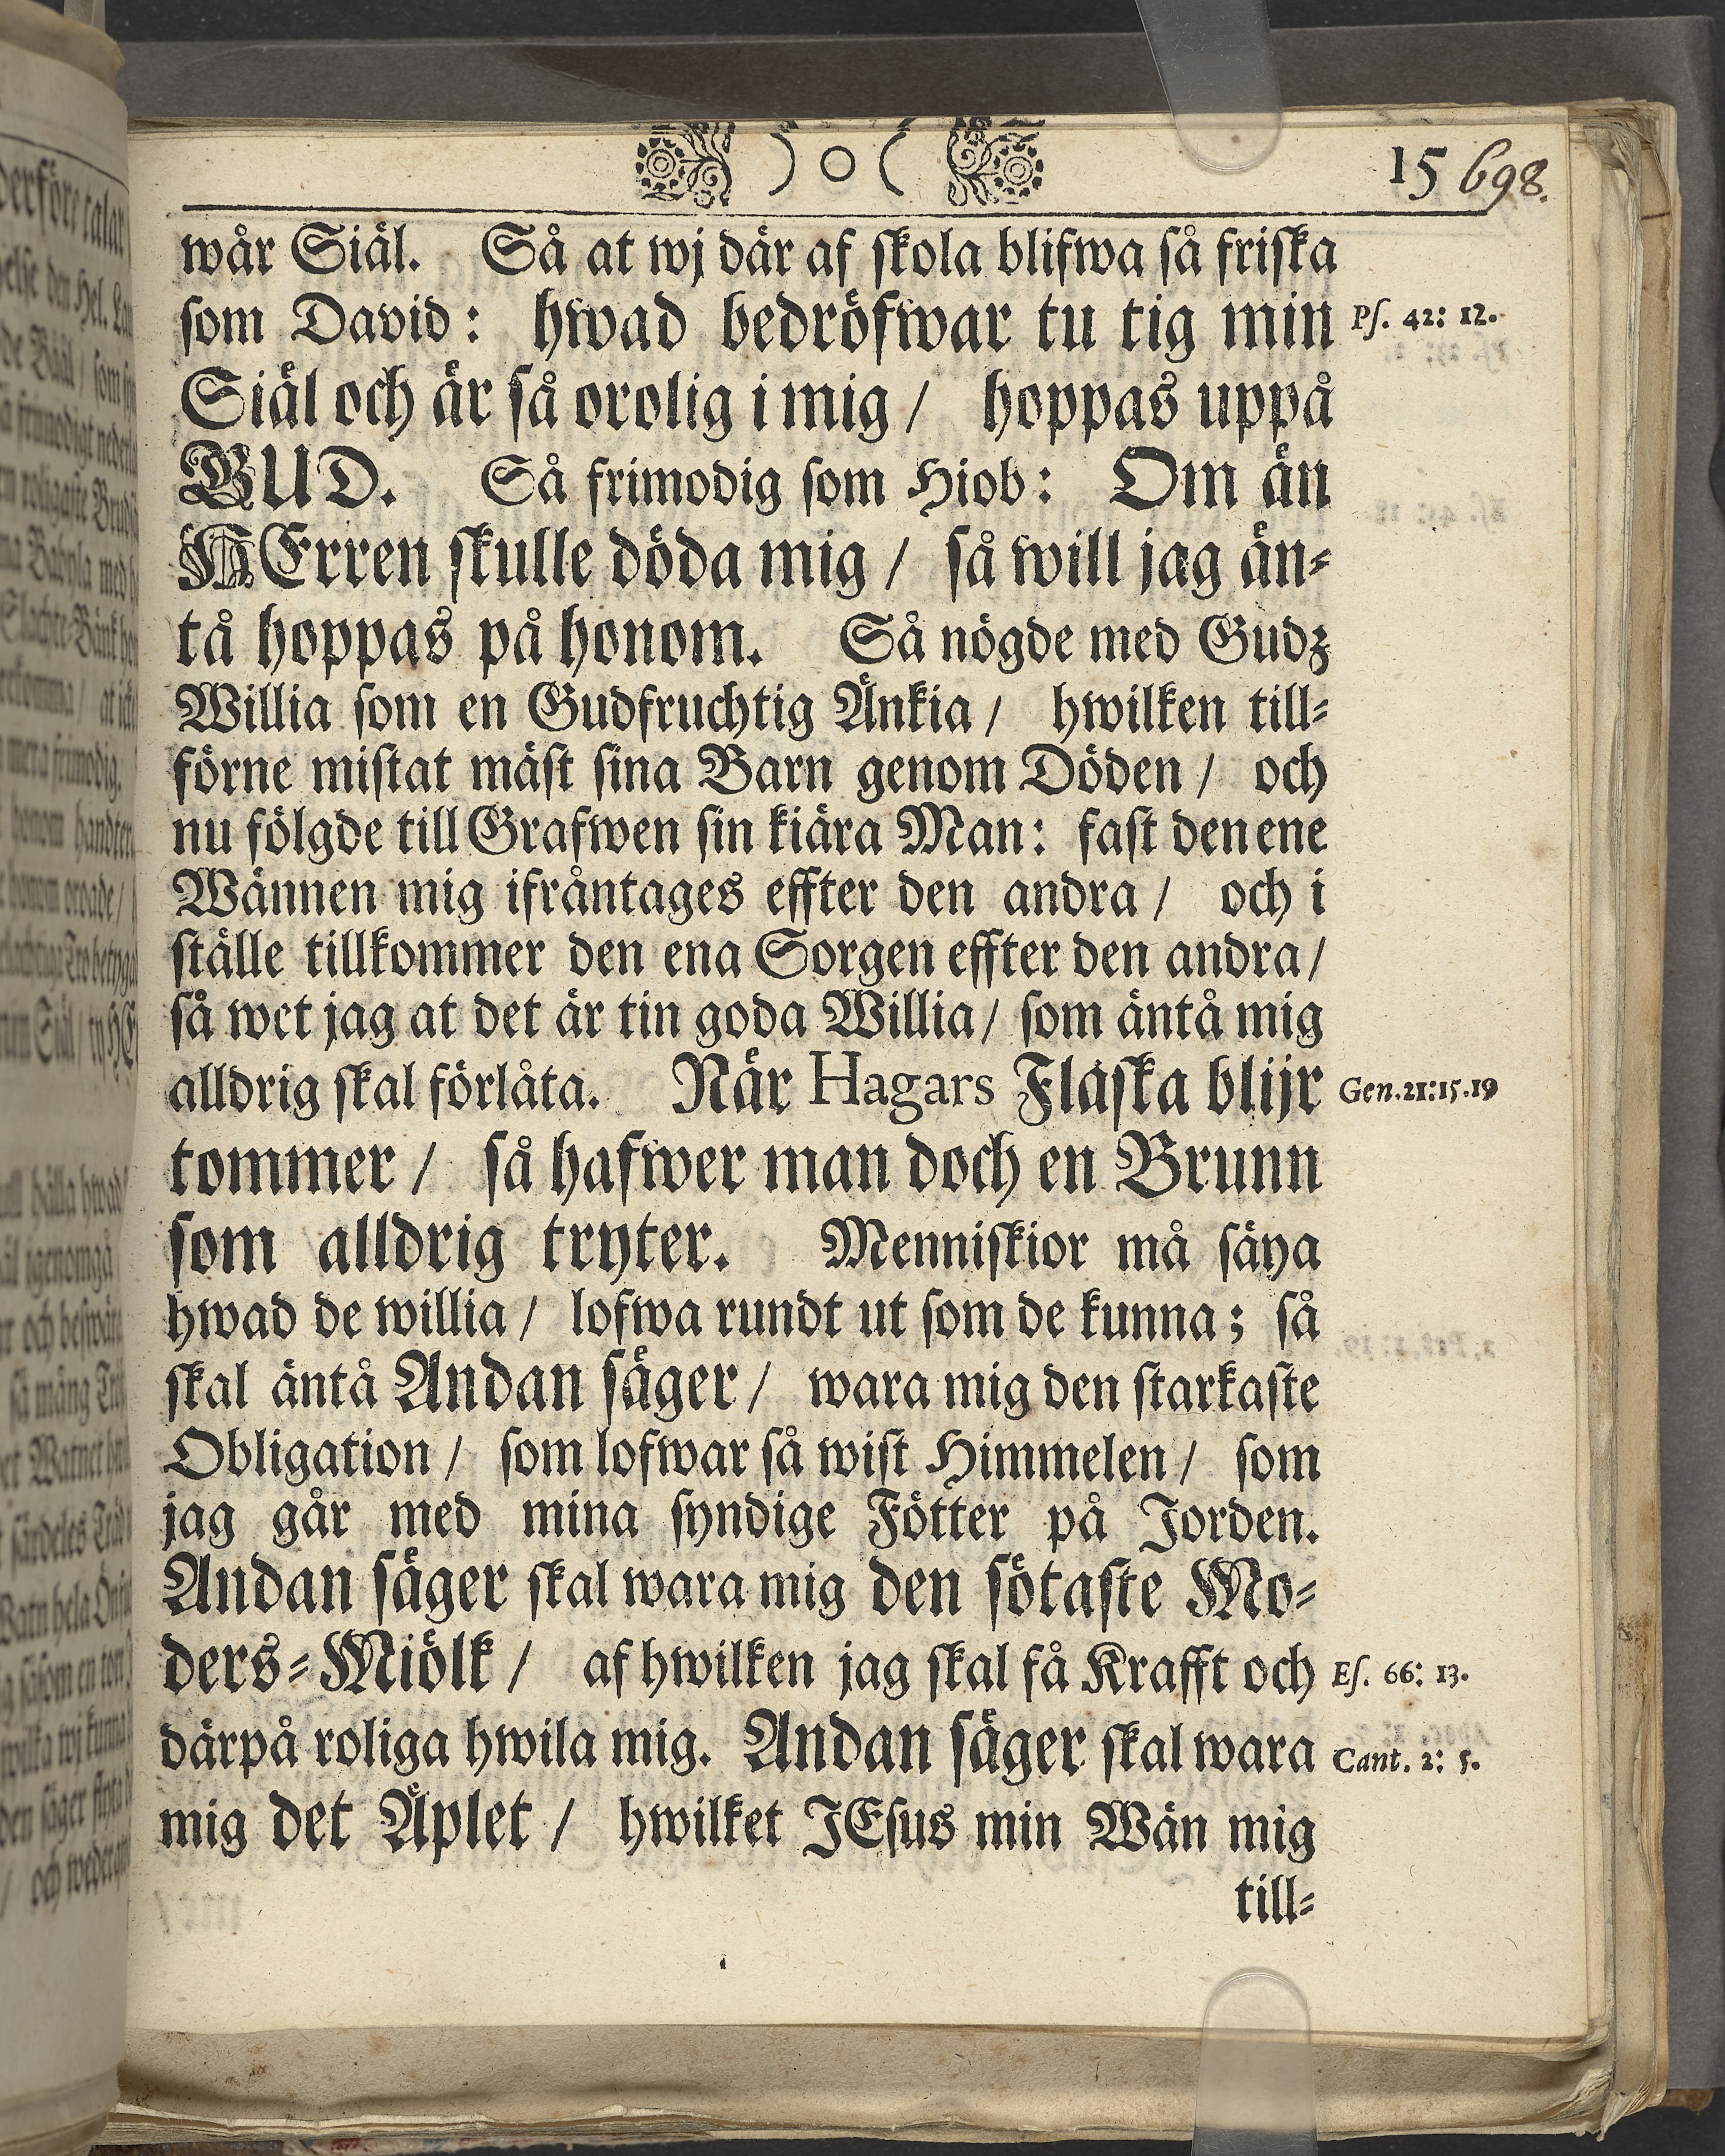 ) o ( 15 698.
wår Siäl. Så at wj där af skola blifwa så friska
som David: hwad bedröfwar tu tig min Ps. 42: 12.
Siäl och är så orolig i mig / hoppas uppå
GUD. Så frimodig som Hiob: Om än
HErren skulle döda mig / så will jag än-
tå hoppas på honom. Så nögde med Gudz
Willia som en Gudfruchtig Änkia / hwilken till-
förne mistat mäst sina Barn genom Döden / och
nu fölgde till Grafwen sin kiära Man: fast den ene
Wännen mig ifråntages effter den andra / och i
ställe tillkommer den ena Sorgen effter den andra /
så wet jag at det är tin goda Willia / som äntå mig
alldrig skal förlåta. När Hagars Flaska blijr Gen.21:15.19
tommer / så hafwer man doch en Brunn
som alldrig tryter. Menniskior må säya
hwad de willia / lofwa rundt ut som de kunna; så
skal äntå Andan säger / wara mig den starkaste
Obligation / som lofwar så wist Himmelen / som
jag går med mina syndige Fötter på Jorden.
Andan säger skal wara mig den sötaste Mo-
ders-Miölk / af hwilken jag skal få Krafft och Es. 66: 13.
därpå roliga hwila mig. Andan säger skal wara Cant. 2: 5.
mig det Äplet / hwilket JEsus min Wän mig
till-